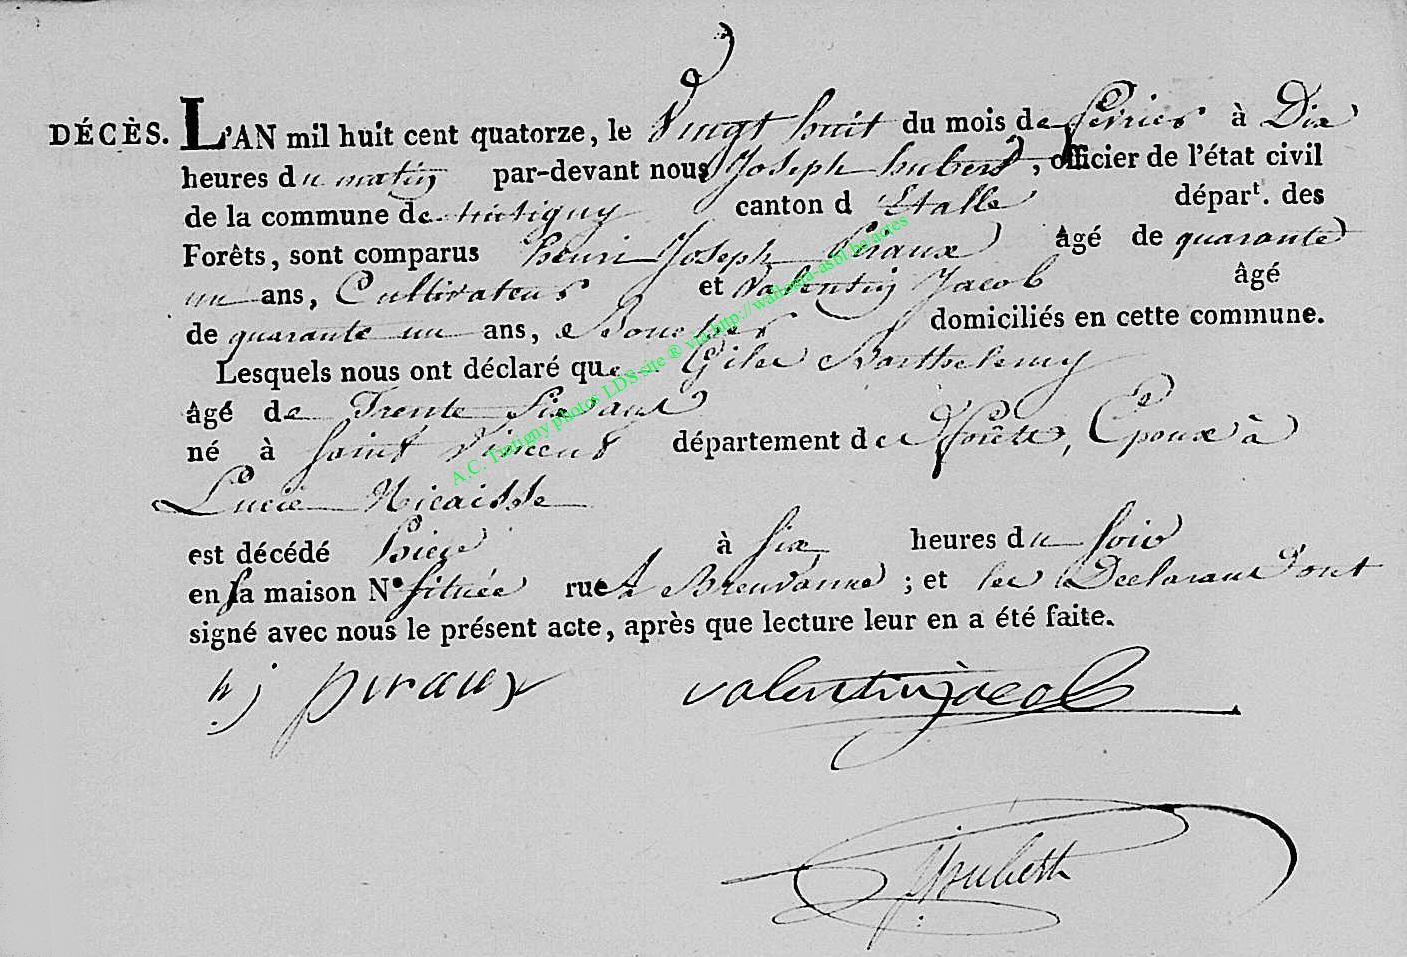 DÉCÈS. L'AN mil huit cent quatorze, le Vingt huit du mois de fevrier à Dix
heures du matin par-devant nous Joseph hubert, officier de l'état civil
de la commune de tintigny canton d'Etalle départ. des
Forêts, sont comparus henri Joseph Piraux âgé de quarante
un ans, Cultivateur et Valentin Jacob âgé
de quarante un ans, Boucher domiciliés en cette commune.
Lesquels nous ont déclaré que Giles Barthelemy
âgé de Trente Six ans
né à Saint Vincent département de forêts, Epoux à
Lucie Nicaisse
est décédé hier à Six heures du Soir
en sa maison N° située rue à Breuvanne; et les Declarans ont
signé avec nous le présent acte, après que lecture leur en a été faite.
h j piraux valentin jacob
J hubert
A.C. Tintigny photos LDS site ® via http://wallonia-asbl.be/actes